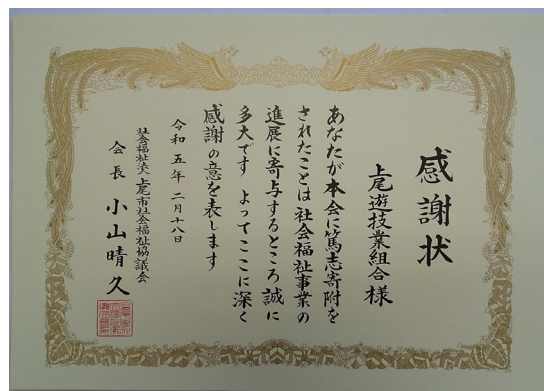 感謝状
上尾遊技業組合様
あなたが本会に篤志寄附を
されたことは社会福祉事業の
進展に寄与するところ誠に
多大です よってここに深く
感謝の意を表します
令和五年二月十八日
社会福祉法人上尾市社会福祉協議会
会長 小山晴久